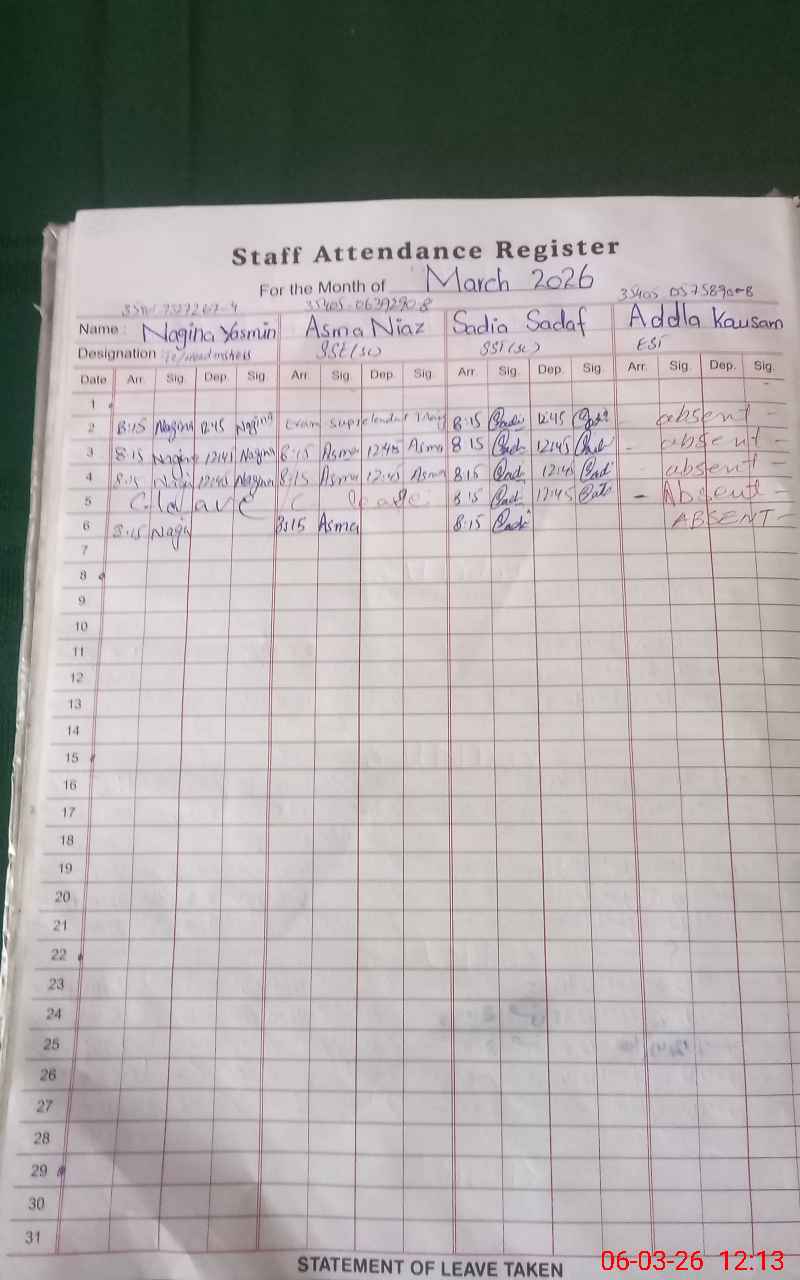 Staff Attendance Register
For the Month of March 2026
35405 0639290-8 35405 0575890-8
Name : Nagina Yasmin Asma Niaz Sadia Sadaf Addla Kausam
Designation SST(sc) SST(sc) EST
Date Arr. Sig. Dep. Sig. Arr. Sig. Dep. Sig. Arr. Sig. Dep. Sig. Arr. Sig. Dep. Sig.
1
2 8:15 Nagina 12:45 Nagina Exam 8:15 12:45 absent -
3 8:15 Nagina 12:45 Nagina 8:15 Asma 12:45 Asma 8 15 12:45 - absent -
4 8:15 12:45 Nagina 8:15 Asma 12:45 Asma 8:15 12:45 absent -
5 C leave 8:15 12:45 - Absent -
6 8:15 Nagi 8:15 Asma 8:15 ABSENT -
7
8
9
10
11
12
13
14
15
16
17
18
19
20
21
22
23
24
25
26
27
28
29
30
31
STATEMENT OF LEAVE TAKEN
06-03-26 12:13